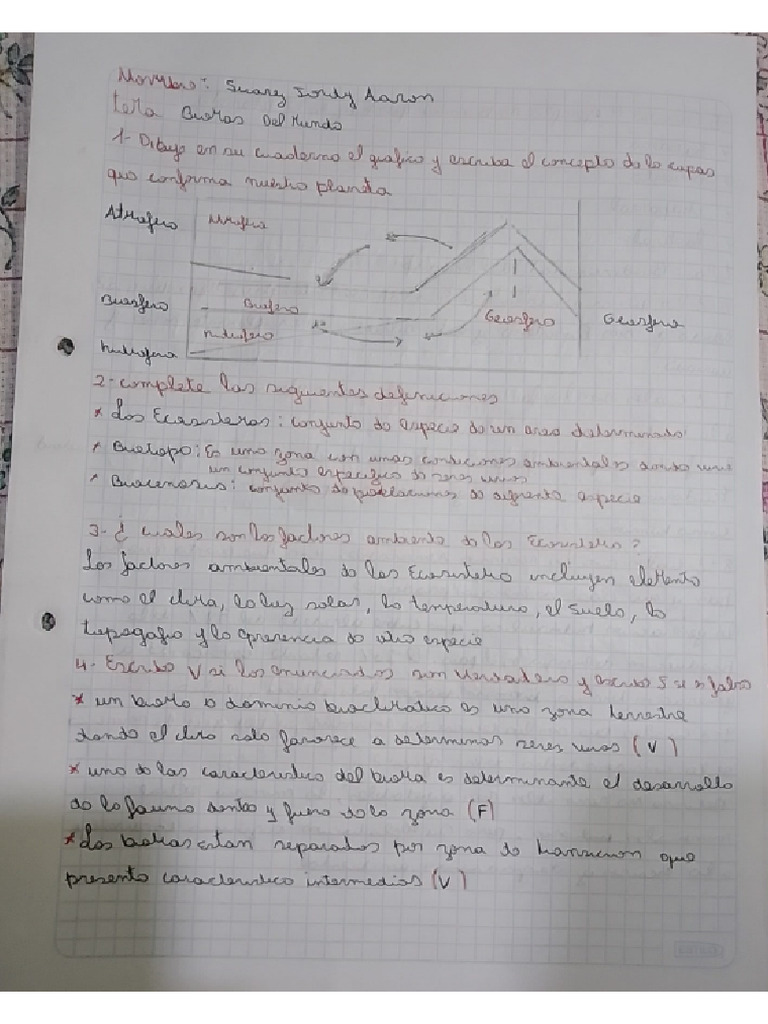 Nombre: Suarez Jordy Aaron
tema Biomas Del Mundo
1- Dibuje en su cuaderno el grafico y escriba el concepto de lo capas
que conforma nuestro planeta
Atmosfero Atmosfera
Biosfero Biosfero Geosfero Geosfera
hidrosfera hidrosfero
2- complete las siguientes definiciones
* Los Ecosistemas: conjunto de especie de un area determinado
* Biotopo: Es uno zona con unas condiciones ambientales donde vive
un conjunto especifico de seres vivos
* Biocenosis: conjunto de poblaciones de diferente especie
3- ¿ cuales son los factores ambiente de los Ecosistema ?
Los factores ambientales de los Ecosistema incluyen elemento
como el clima, la luz solar, la temperatura, el suelo, la
topografia y la presencia de otra especie
4- Escriba V si los enunciados son verdadero y escriba F si es falso
* un bioma o dominio bioclimatico es uno zona terrestre
donde el clima solo favorece a determinos seres vivos (V)
* uno de las caracteristico del bioma es determinante el desarrollo
de la fauna dentro y fuera de la zona (F)
* Los biomas estan separados por zona de transicion que
presenta caracteristica intermedias (V)